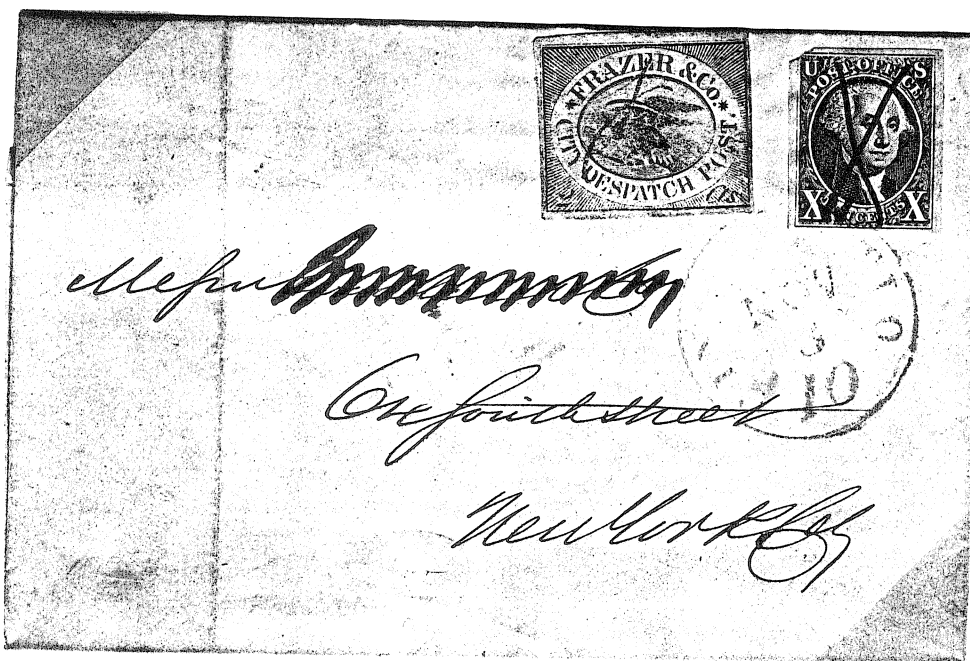 ★ FRAZER & CO. ★
CITY DESPATCH POST
U S
POST OFFICE
X CENTS X
Messrs
NOV
10
South Street
New York City